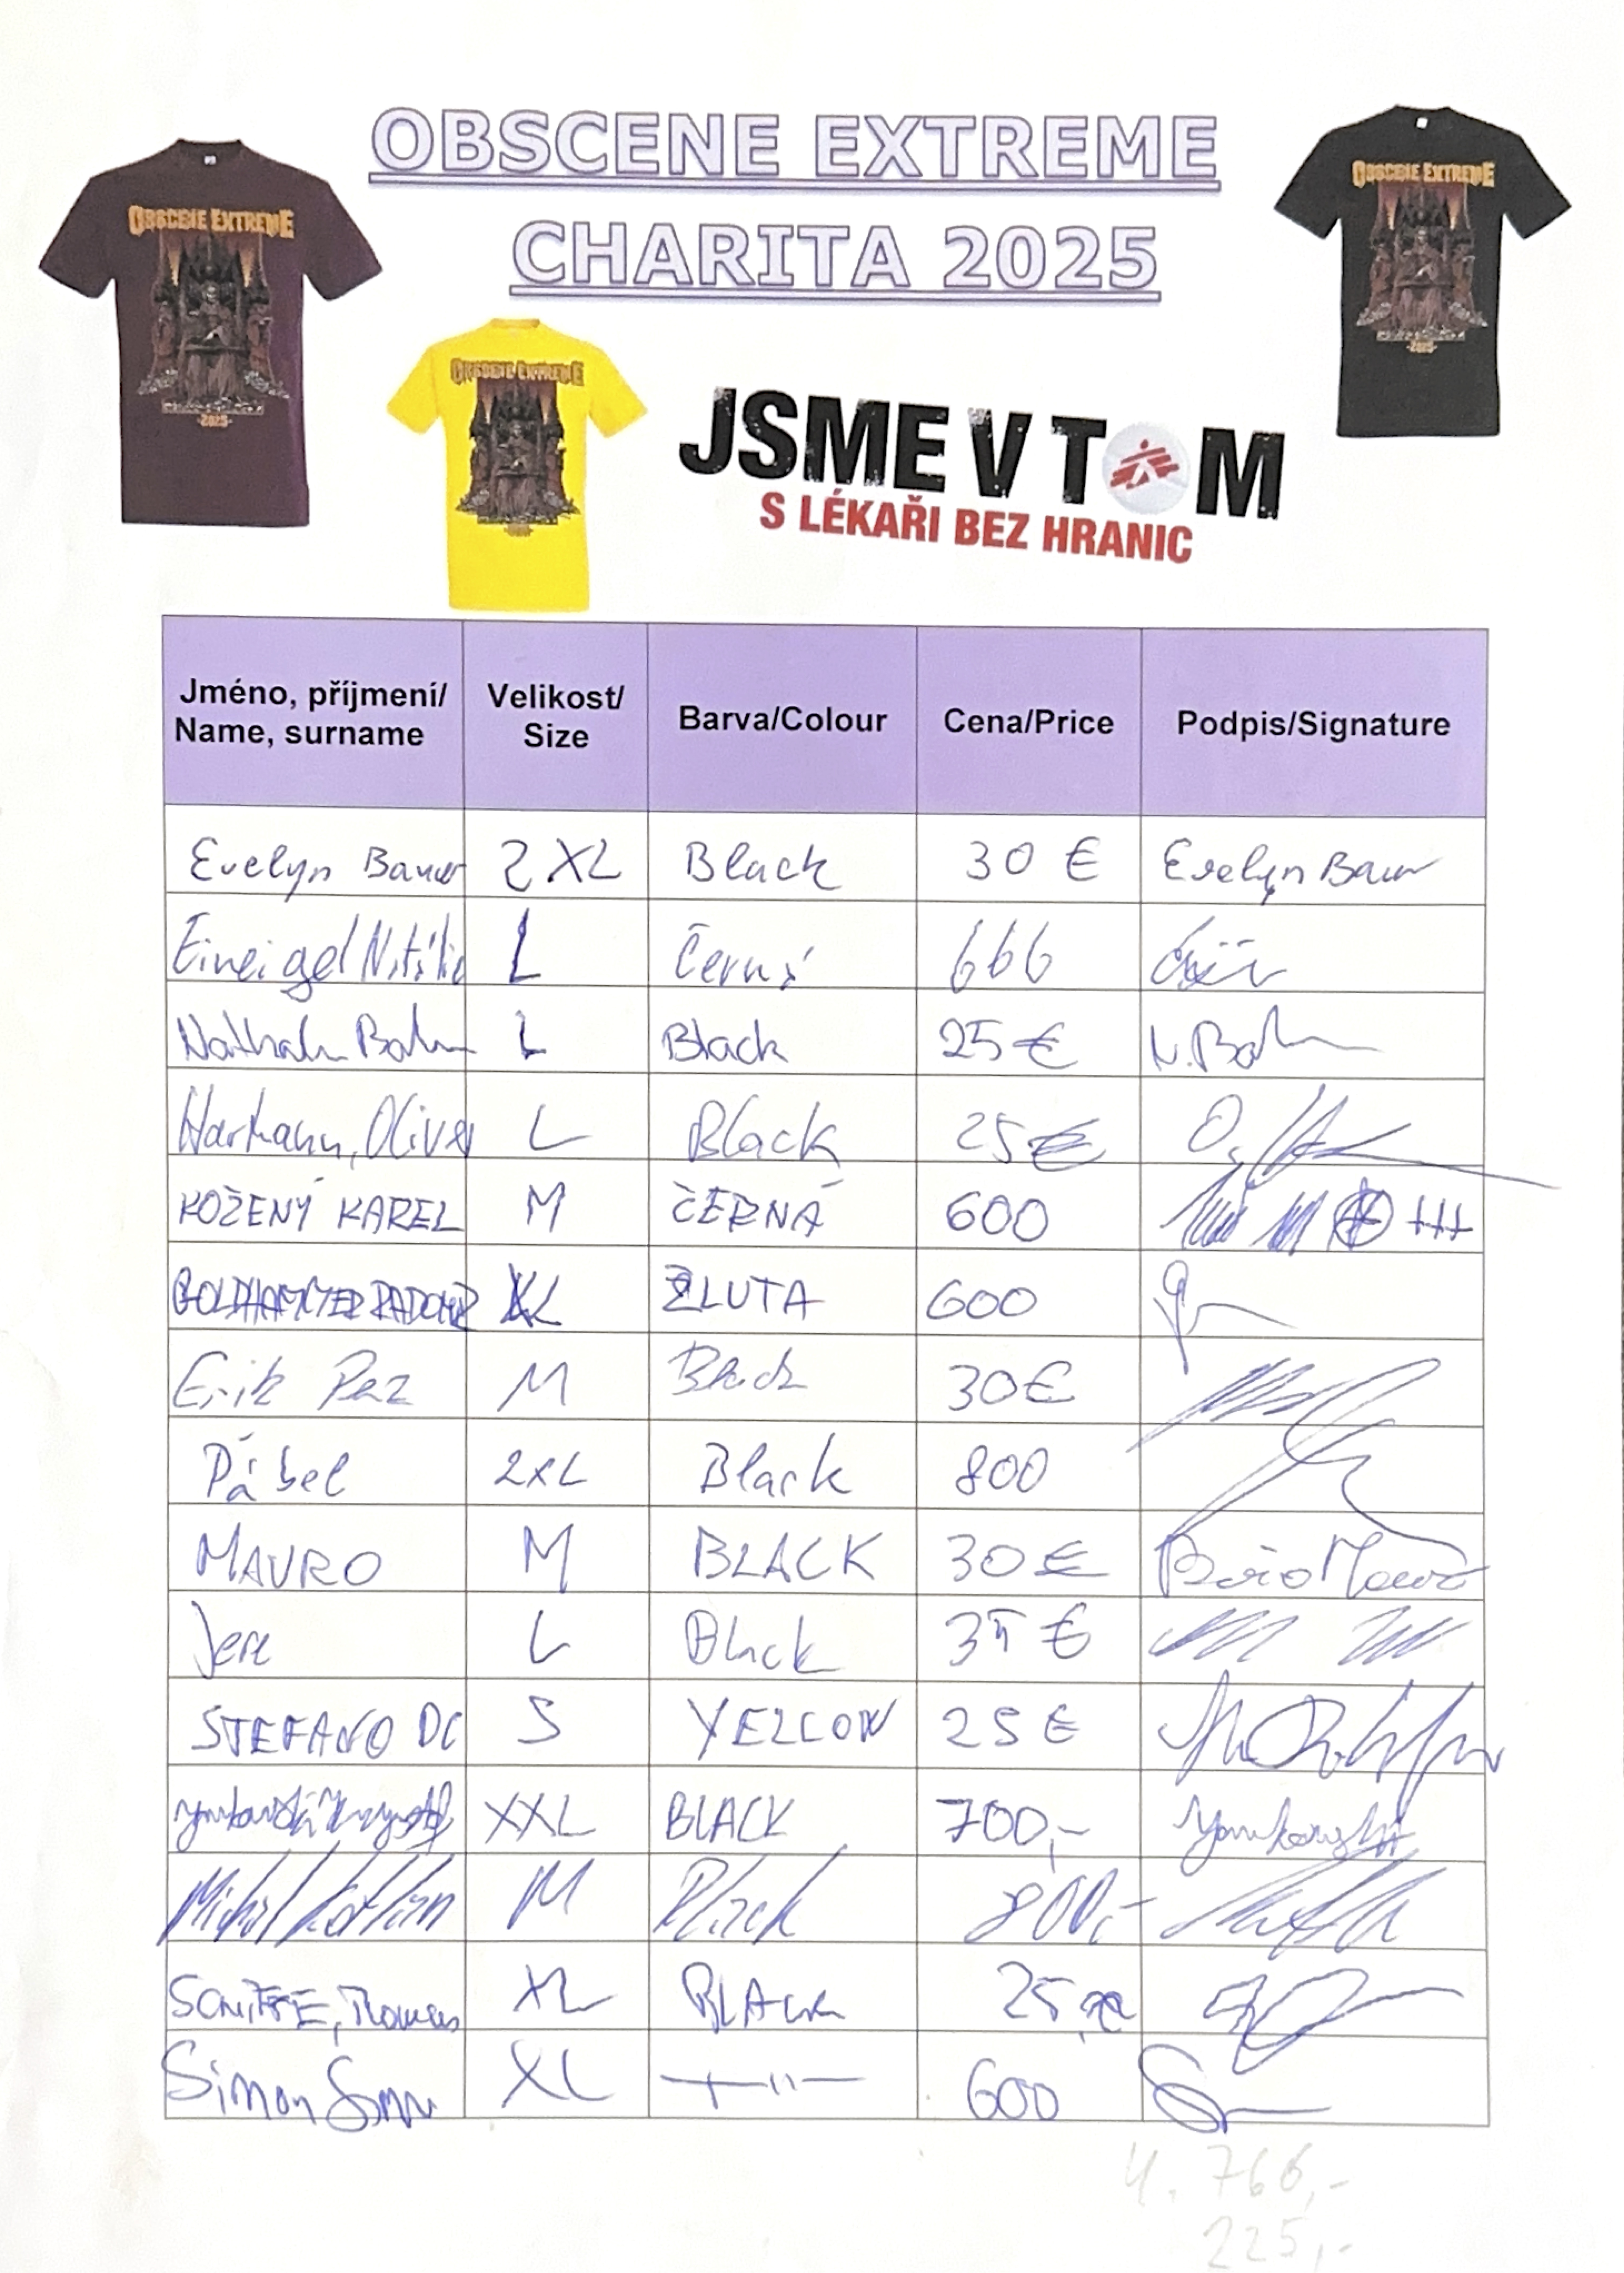 OBSCENE EXTREME
CHARITA 2025
OBSCENE EXTREME
-2025-
OBSCENE EXTREME
OBSCENE EXTREME
-2025-
JSME V TOM
S LÉKAŘI BEZ HRANIC
Jméno, příjmení/ Name, surname Velikost/ Size Barva/Colour Cena/Price Podpis/Signature
Evelyn Bauer 2XL Black 30 € Evelyn Bauer
L Černá 666
L Black 25 € N.
Hartmann, Oliver L Black 25 €
KOŽENÝ KAREL M ČERNÁ 600
GOLDHAMMER RADOMÍR XL ŽLUTA 600
Erik Paz M Black 30 €
Pábel 2XL Black 800
MAURO M BLACK 30 €
Jere L Black 35 €
STEFANO DC S YELLOW 25 €
XXL BLACK 700,-
Michal M Black 800,-
Thomas XL BLACK 25,
Simon XL —"— 600
4.766,-
225,-